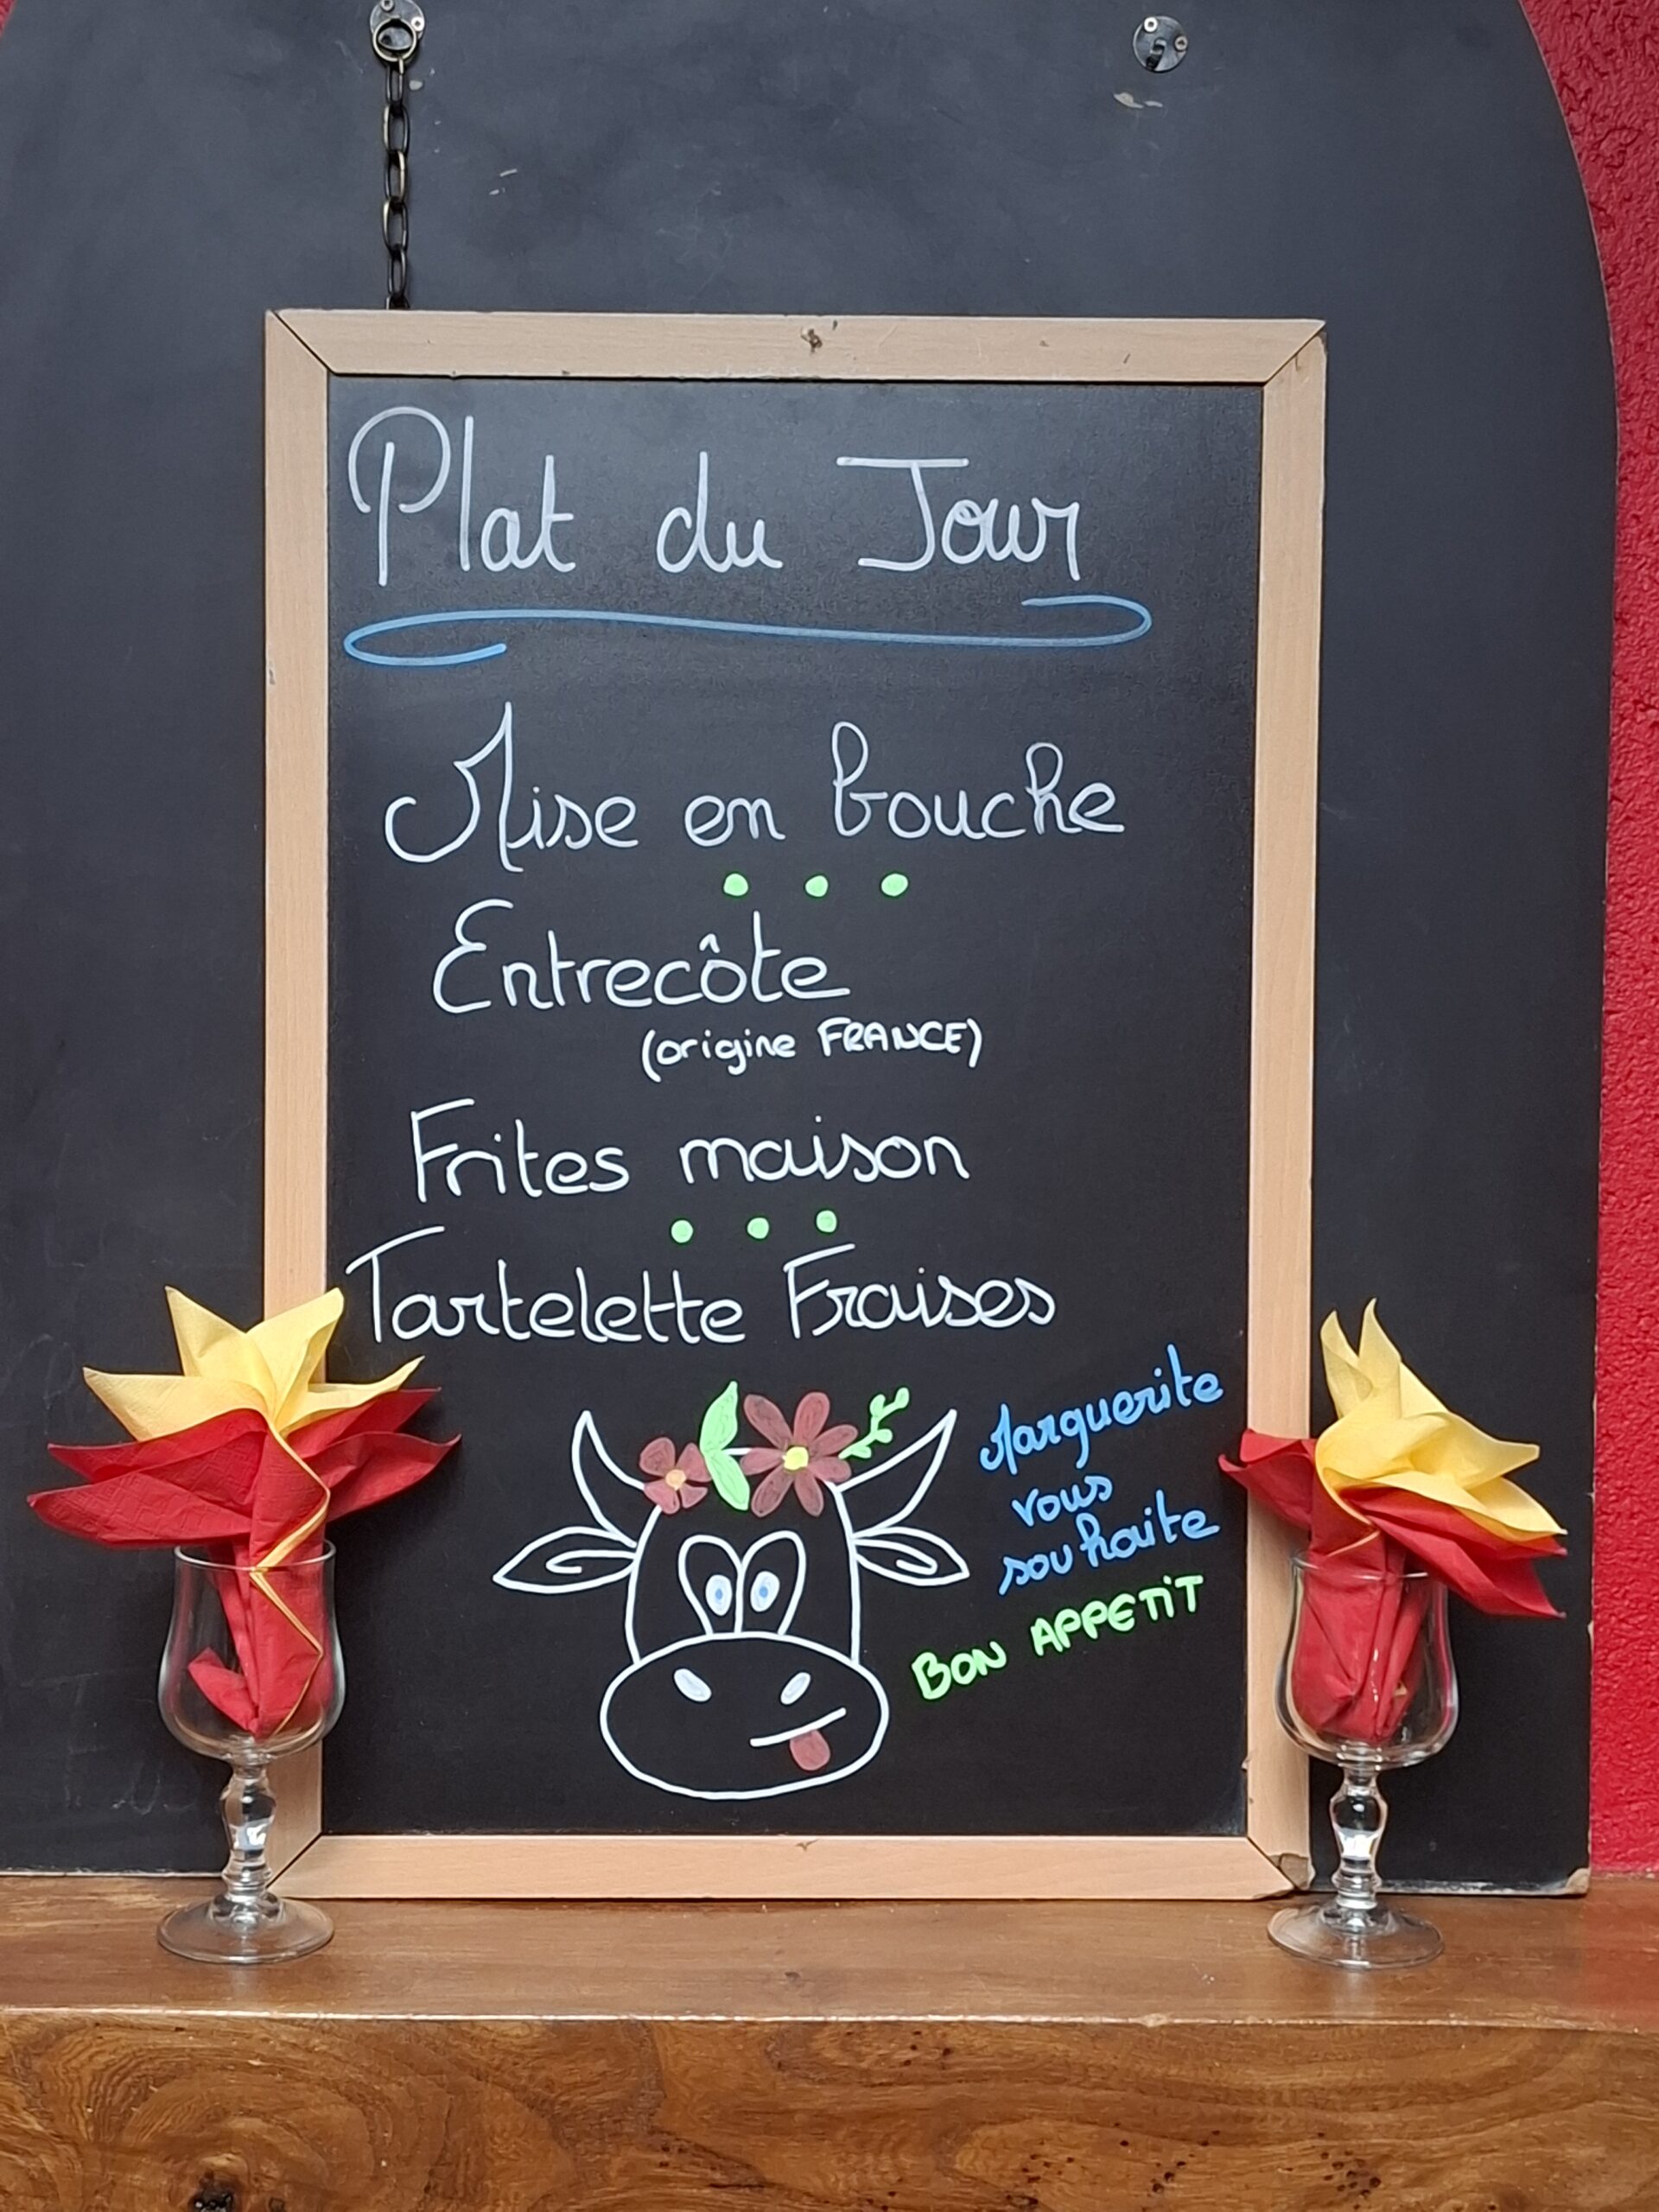 Plat du Jour
Mise en bouche
Entrecôte
(origine FRANCE)
Frites maison
Tartelette Fraises
Marguerite
vous
souhaite
BON APPETIT